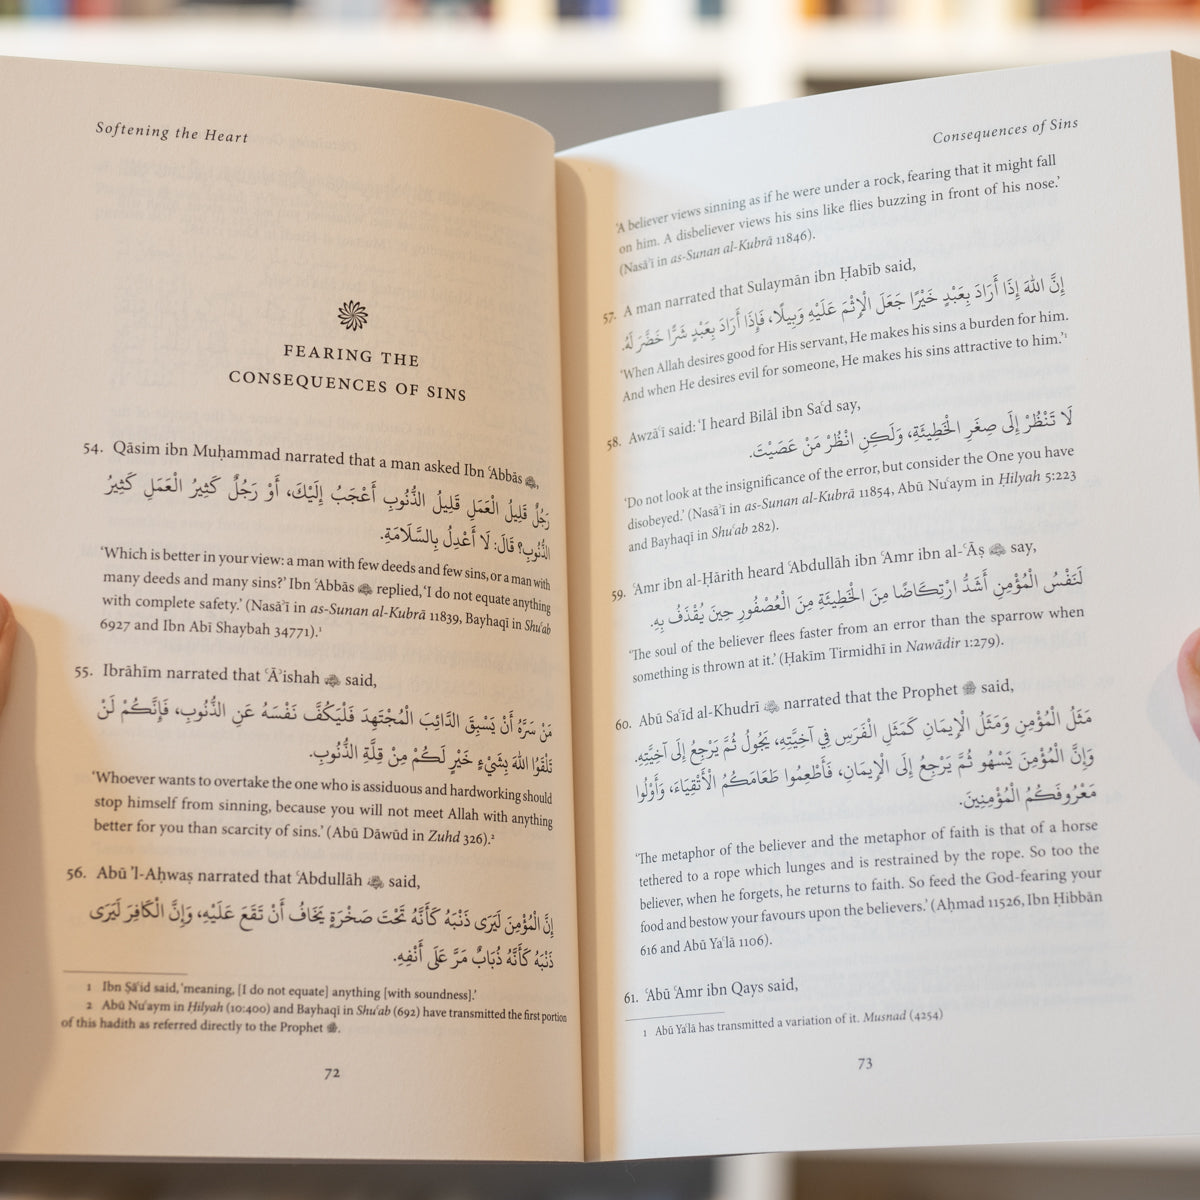 Softening the Heart
FEARING THE
CONSEQUENCES OF SINS
54. Qāsim ibn Muḥammad narrated that a man asked Ibn ʿAbbās ,
رَجُلٌ قَلِيلُ الْعَمَلِ قَلِيلُ الذُّنُوبِ أَعْجَبُ إِلَيْكَ، أَوْ رَجُلٌ كَثِيرُ الْعَمَلِ كَثِيرُ
الذُّنُوبِ؟ قَالَ: لَا أَعْدِلُ بِالسَّلَامَةِ.
‘Which is better in your view: a man with few deeds and few sins, or a man with
many deeds and many sins?’ Ibn ʿAbbās replied, ‘I do not equate anything
with complete safety.’ (Nasāʾī in as-Sunan al-Kubrā 11839, Bayhaqī in Shuʿab
6927 and Ibn Abī Shaybah 34771).¹
55. Ibrāhīm narrated that ʿĀʾishah said,
مَنْ سَرَّهُ أَنْ يَسْبِقَ الدَّائِبَ الْمُجْتَهِدَ فَلْيَكُفَّ نَفْسَهُ عَنِ الذُّنُوبِ، فَإِنَّكُمْ لَنْ
تَلْقَوُا اللهَ بِشَيْءٍ خَيْرٍ لَكُمْ مِنْ قِلَّةِ الذُّنُوبِ.
‘Whoever wants to overtake the one who is assiduous and hardworking should
stop himself from sinning, because you will not meet Allah with anything
better for you than scarcity of sins.’ (Abū Dāwūd in Zuhd 326).²
56. Abū ’l-Aḥwaṣ narrated that ʿAbdullāh said,
إِنَّ الْمُؤْمِنَ لَيَرَى ذَنْبَهُ كَأَنَّهُ تَحْتَ صَخْرَةٍ يَخَافُ أَنْ تَقَعَ عَلَيْهِ، وَإِنَّ الْكَافِرَ لَيَرَى
ذَنْبَهُ كَأَنَّهُ ذُبَابٌ مَرَّ عَلَى أَنْفِهِ.
1 Ibn Ṣāʿid said, ‘meaning, [I do not equate] anything [with soundness].’
2 Abū Nuʿaym in Ḥilyah (10:400) and Bayhaqī in Shuʿab (692) have transmitted the first portion
of this hadith as referred directly to the Prophet ﷺ.
72
Consequences of Sins
‘A believer views sinning as if he were under a rock, fearing that it might fall
on him. A disbeliever views his sins like flies buzzing in front of his nose.’
(Nasāʾī in as-Sunan al-Kubrā 11846).
57. A man narrated that Sulaymān ibn Ḥabīb said,
إِنَّ اللهَ إِذَا أَرَادَ بِعَبْدٍ خَيْرًا جَعَلَ الْإِثْمَ عَلَيْهِ وَبِيلًا، فَإِذَا أَرَادَ بِعَبْدٍ شَرًّا خَضَّرَ لَهُ.
‘When Allah desires good for His servant, He makes his sins a burden for him.
And when He desires evil for someone, He makes his sins attractive to him.’¹
58. Awzāʿī said: ‘I heard Bilāl ibn Saʿd say,
لَا تَنْظُرْ إِلَى صِغَرِ الْخَطِيئَةِ، وَلَكِنِ انْظُرْ مَنْ عَصَيْتَ.
‘Do not look at the insignificance of the error, but consider the One you have
disobeyed.’ (Nasāʾī in as-Sunan al-Kubrā 11854, Abū Nuʿaym in Ḥilyah 5:223
and Bayhaqī in Shuʿab 282).
59. ʿAmr ibn al-Ḥārith heard ʿAbdullāh ibn ʿAmr ibn al-ʿĀṣ say,
لَنَفْسُ الْمُؤْمِنِ أَشَدُّ ارْتِكَاضًا مِنَ الْخَطِيئَةِ مِنَ الْعُصْفُورِ حِينَ يُقْذَفُ بِهِ.
‘The soul of the believer flees faster from an error than the sparrow when
something is thrown at it.’ (Ḥakīm Tirmidhī in Nawādir 1:279).
60. Abū Saʿīd al-Khudrī narrated that the Prophet ﷺ said,
مَثَلُ الْمُؤْمِنِ وَمَثَلُ الْإِيمَانِ كَمَثَلِ الْفَرَسِ فِي آخِيَّتِهِ، يَجُولُ ثُمَّ يَرْجِعُ إِلَى آخِيَّتِهِ.
وَإِنَّ الْمُؤْمِنَ يَسْهُو ثُمَّ يَرْجِعُ إِلَى الْإِيمَانِ، فَأَطْعِمُوا طَعَامَكُمُ الْأَتْقِيَاءَ، وَأَوْلُوا
مَعْرُوفَكُمُ الْمُؤْمِنِينَ.
‘The metaphor of the believer and the metaphor of faith is that of a horse
tethered to a rope which lunges and is restrained by the rope. So too the
believer, when he forgets, he returns to faith. So feed the God-fearing your
food and bestow your favours upon the believers.’ (Aḥmad 11526, Ibn Ḥibbān
616 and Abū Yaʿlā 1106).
61. ʿAbū ʿAmr ibn Qays said,
1 Abū Yaʿlā has transmitted a variation of it. Musnad (4254)
73